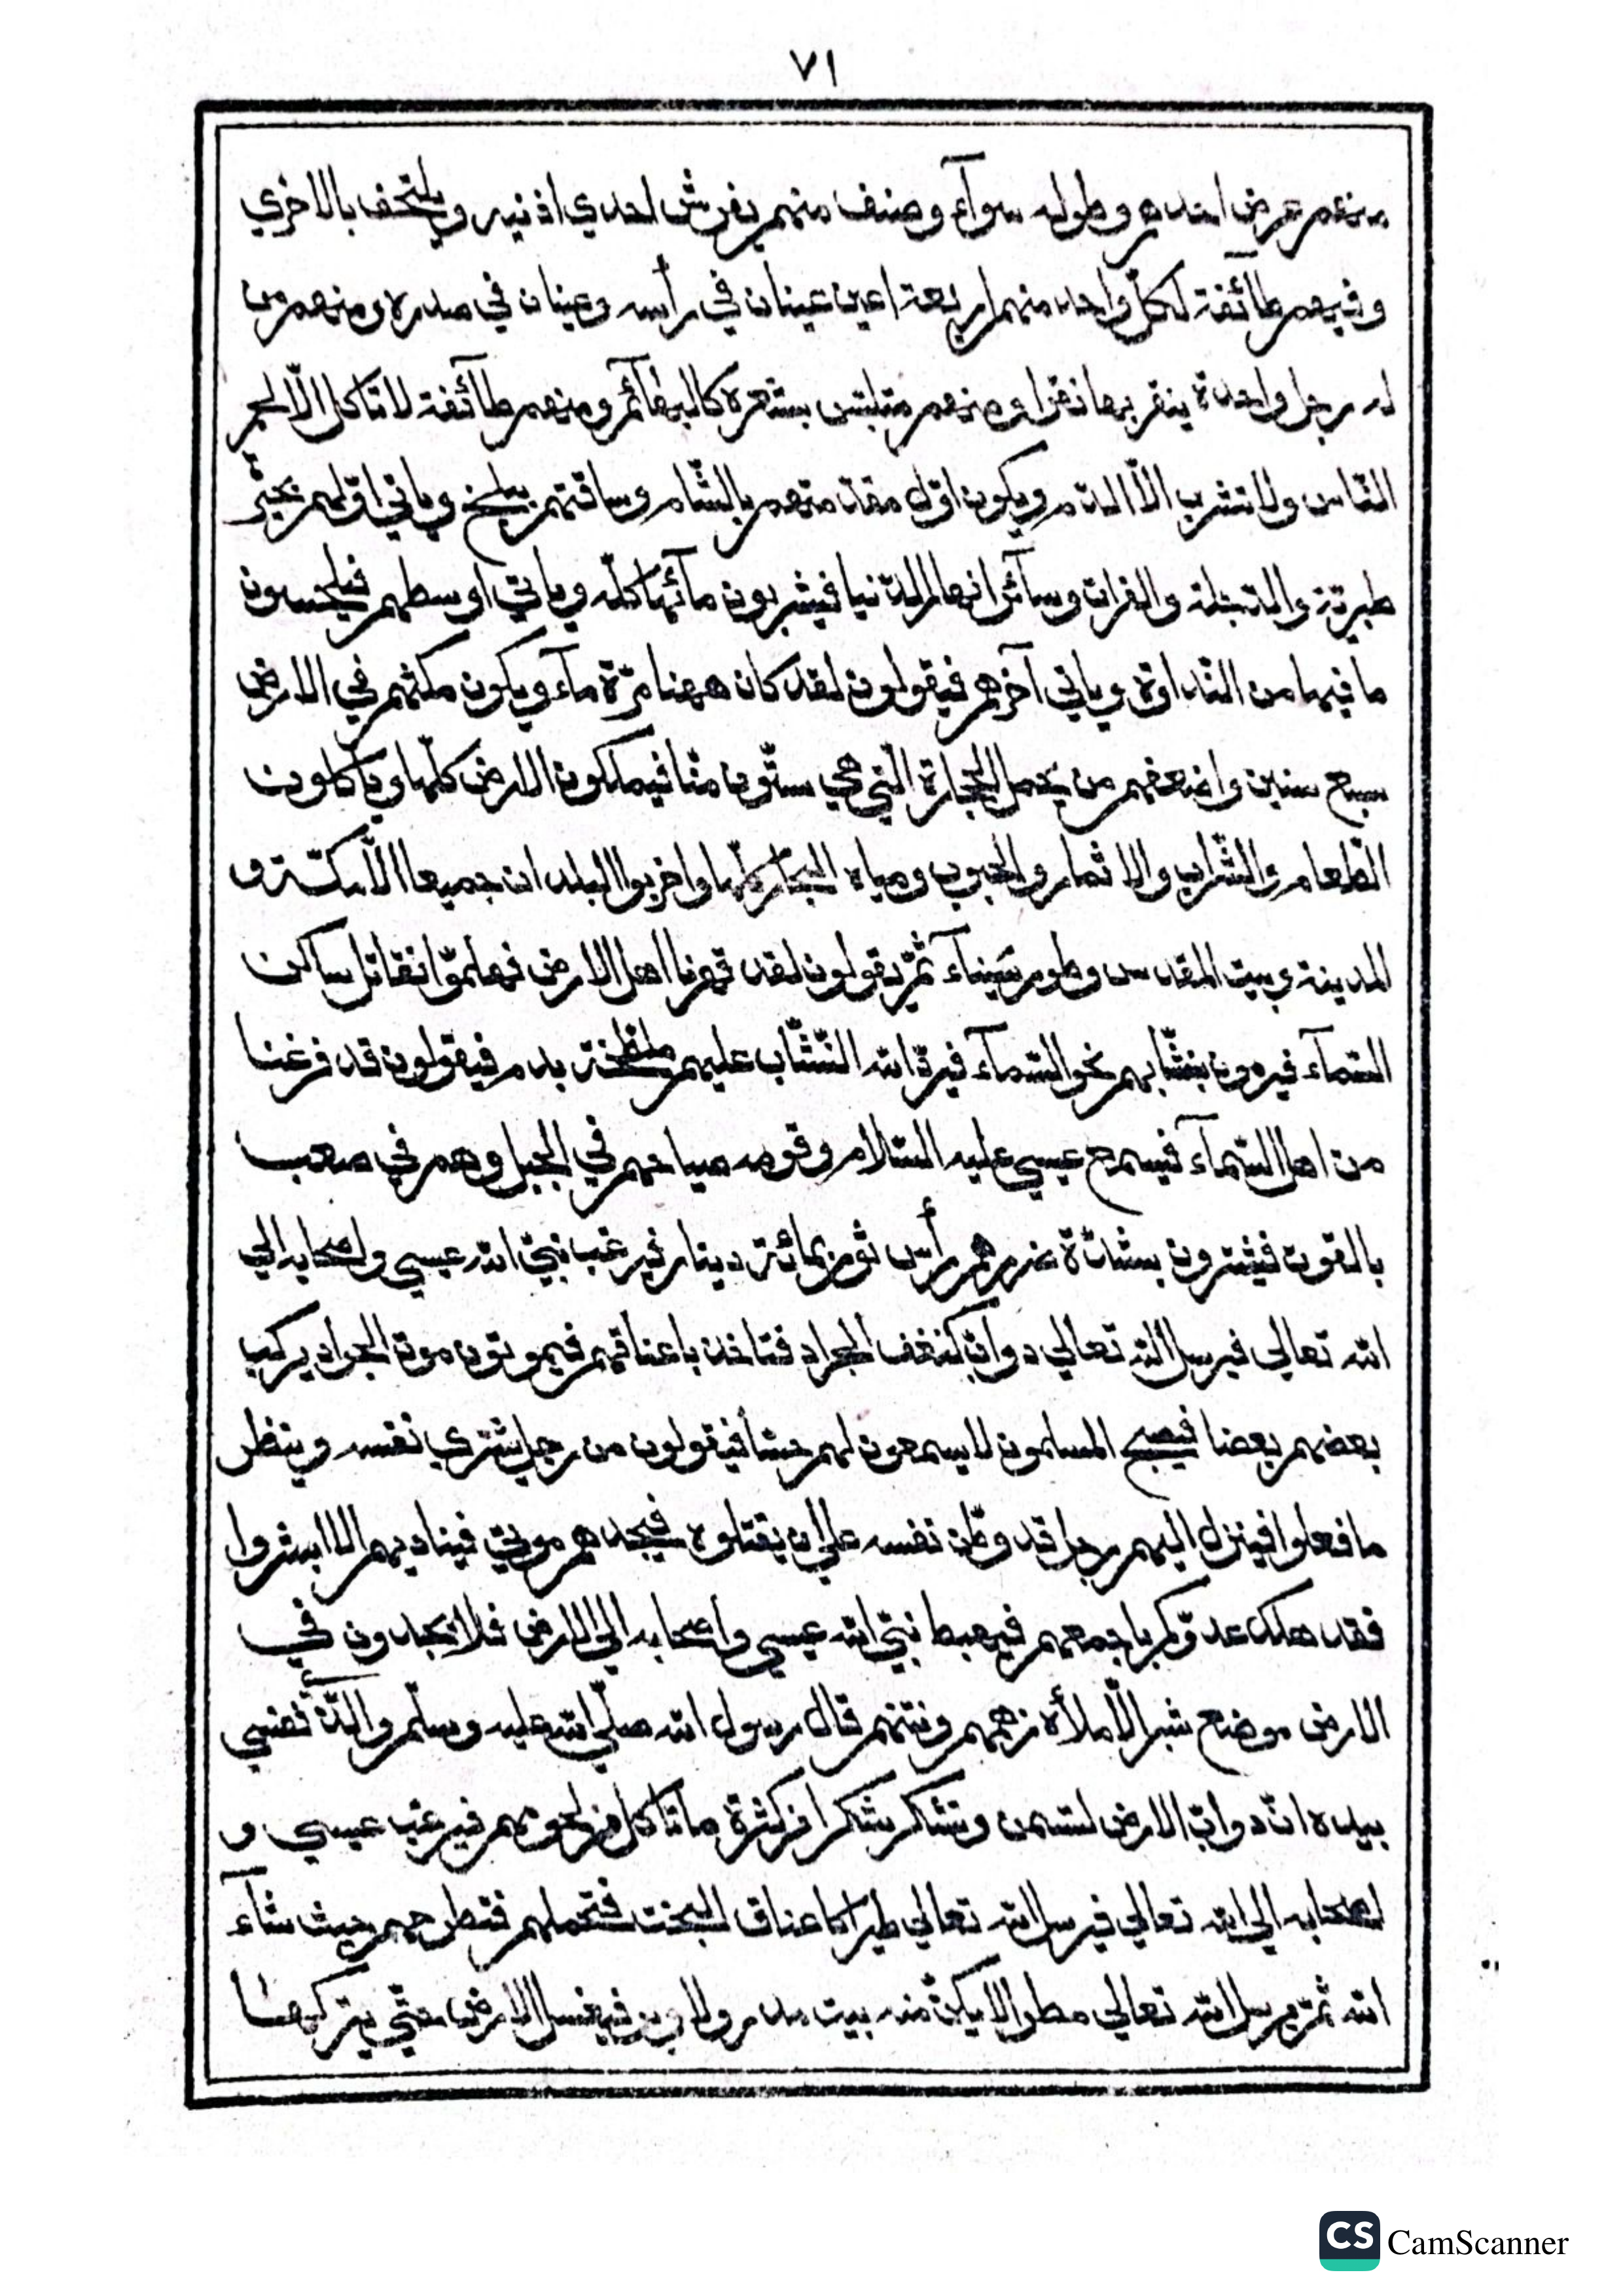 ٧١
منهم عرض احدهم وطوله سوآء وصنف منهم يفرش احدي اذنيه ويلتحف بالاخري
وفيهم طآئفة لكلّ واحد منهم اربعة اعين عينان في رأسه وعينان في صدره ومنهم من
له رجل واحدة ينقر بها نقرا ومنهم متلبّس بشعره كالبهآئم ومنهم طآئفة لا تاكل الّا لحم
النّاس ولا تشرب الّا الدّم ويكون اوّل مقدّمتهم بالشّام وساقتهم ببلخ وياتي اوّلهم بحيرة
طبريّة والدّجلة والفرات وسآئر انهار الدّنيا فيشربون مآئها كلّه وياتي اوسطهم فيلحسون
ما فيها من النّداوة وياتي آخرهم فيقولون لقد كان ههنا مرّة مآء ويكون مكثهم في الارض
سبع سنين واضعفهم من يحمل الحجارة الّتي هي ستّون منّا فيملكون الارض كلّها وياكلون
الطّعام والشّراب والاثمار والحبوب ومياه البحار كلّها واخربوا البلدان جميعا الّا مكّة و
المدينة وبيت المقدس وطور سيناء ثمّ يقولون لقد قهرنا اهل الارض فهلمّوا نقاتل ساكن
السّمآء فيرمون بنشّابهم نحو السّمآء فيردّ الله النّشّاب عليهم ملطّخة بدم فيقولون قد فرغنا
من اهل السّمآء فيسمع عيسي عليه السّلام وقومه صياحهم في الجبل وهم في صعب
بالقوت فيشترون رأس ثور بمائة دينار فيرغب نبيّ الله عيسي واصحابه الي
الله تعالي فيرسل الله تعالي دوابّ كنغف الجراد فتاخذ باعناقهم فيموتون موت الجراد يركب
بعضهم بعضا فيصبح المسلمون لا يسمعون لهم حسّا فيقولون من رجل يشتري نفسه وينظر
ما فعلوا فينزل اليهم رجل قد وطّن نفسه علي ان يقتلوه فيجدهم موتي فيناديهم الا ابشروا
فقد هلك عدوّكم باجمعهم فيهبط نبيّ الله عيسي واصحابه الي الارض فلا يجدون في
الارض موضع شبر الّا ملأه زهمهم ونتنهم قال رسول الله صلّي الله عليه وسلّم والّذي نفسي
بيده انّ دوابّ الارض لتسمن وتشكر شكرا من كثرة ما تاكل من لحومهم فيرغب عيسي و
اصحابه الي الله تعالي فيرسل الله تعالي طيرا كاعناق البخت فتحملهم فتطرحهم حيث شآء
الله ثمّ يرسل الله تعالي مطرا لا يكنّ منه بيت مدر ولا وبر فيغسل الارض حتّي يتركها
CS CamScanner